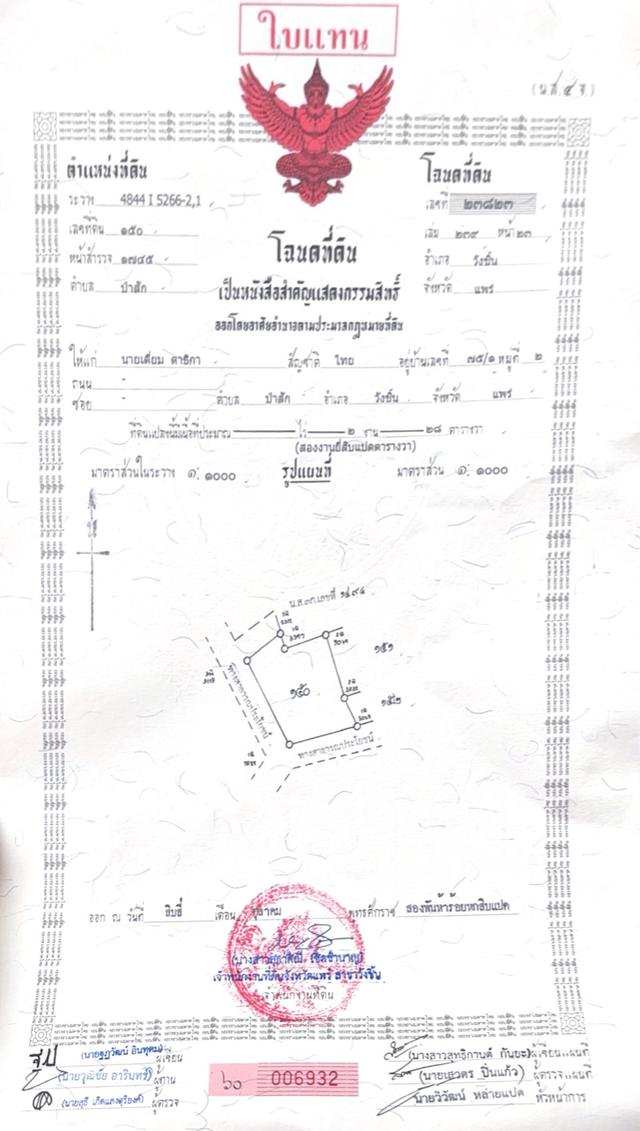 ใบแทน
(น.ส. ๔ จ.)
ตำแหน่งที่ดิน
ระวาง 4844 I 5266-2,1
เลขที่ดิน ๑๕๐
หน้าสำรวจ ๑๗๔๕
ตำบล ป่าสัก
โฉนดที่ดิน
เลขที่ ๒๓๘๒๓
เล่ม ๒๓๙ หน้า ๒๓
อำเภอ วังชิ้น
จังหวัด แพร่
โฉนดที่ดิน
เป็นหนังสือสำคัญแสดงกรรมสิทธิ์
ออกโดยอาศัยอำนาจตามประมวลกฎหมายที่ดิน
ให้แก่ นายเตี่ยม ตาธิกา สัญชาติ ไทย อยู่บ้านเลขที่ ๗๕/๑ หมู่ที่ ๒
ถนน -
ซอย - ตำบล ป่าสัก อำเภอ วังชิ้น จังหวัด แพร่
ที่ดินแปลงนี้มีเนื้อที่ประมาณ - ไร่ ๒ งาน ๒๘ ตารางวา
(สองงานยี่สิบแปดตารางวา)
มาตราส่วนในระวาง ๑: ๑๐๐๐ รูปแผนที่ มาตราส่วน ๑: ๑๐๐๐
น.ส.๓ก.เลขที่
๑๕๑
๑๕๐
๑๕๒
ทางสาธารณประโยชน์
ทางสาธารณประโยชน์
ออก ณ วันที่ สิบสี่ เดือน ตุลาคม พุทธศักราช สองพันห้าร้อยหกสิบแปด
เจ้าพนักงานที่ดินจังหวัดแพร่ สาขาวังชิ้น
เจ้าพนักงานที่ดิน
(นายฐปวัฒน์ อินทุดม) ผู้เขียน
(นายวุฒิชัย อารินทร์) ผู้ทาน
ผู้ตรวจ
๖๐ 006932
(นางสาวสุทธิกานต์ กันยะ) ผู้เขียนแผนที่
(นายเสวตร ปิ่นแก้ว) ผู้ตรวจแผนที่
นายวิวัฒน์ หล่ายแปด หัวหน้าการ